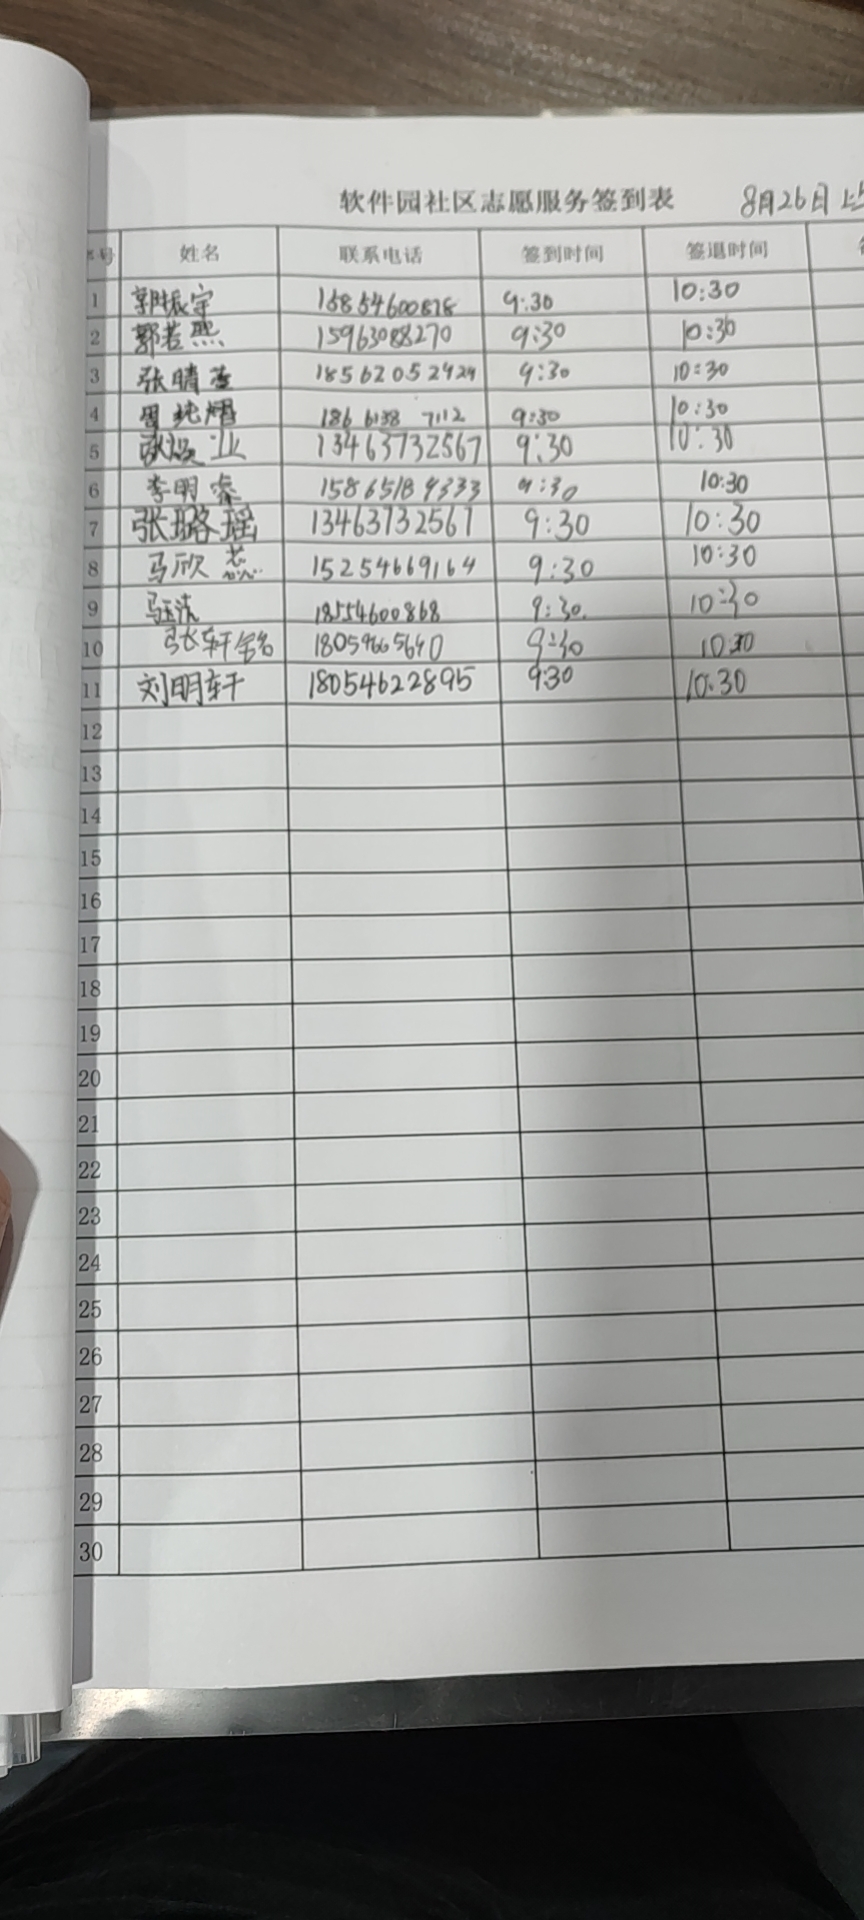 软件园社区志愿服务签到表 8月26日 上
号 姓名 联系电话 签到时间 签退时间
1 郭振宇 15854600878 9:30 10:30
2 郭若熙 15963088270 9:30 10:30
3 张晴 18562052424 9:30 10:30
4 186 6138 7112 9:30 10:30
5 13463732567 9:30 10:30
6 李明睿 15865189333 9:30 10:30
7 张璐瑶 13463732567 9:30 10:30
8 马欣蕊 15254669164 9:30 10:30
9 18554600868 9:30. 10:30
10 张轩铭 18059665640 9:30 10:30
11 刘明轩 18054622895 9:30 10:30
12
13
14
15
16
17
18
19
20
21
22
23
24
25
26
27
28
29
30